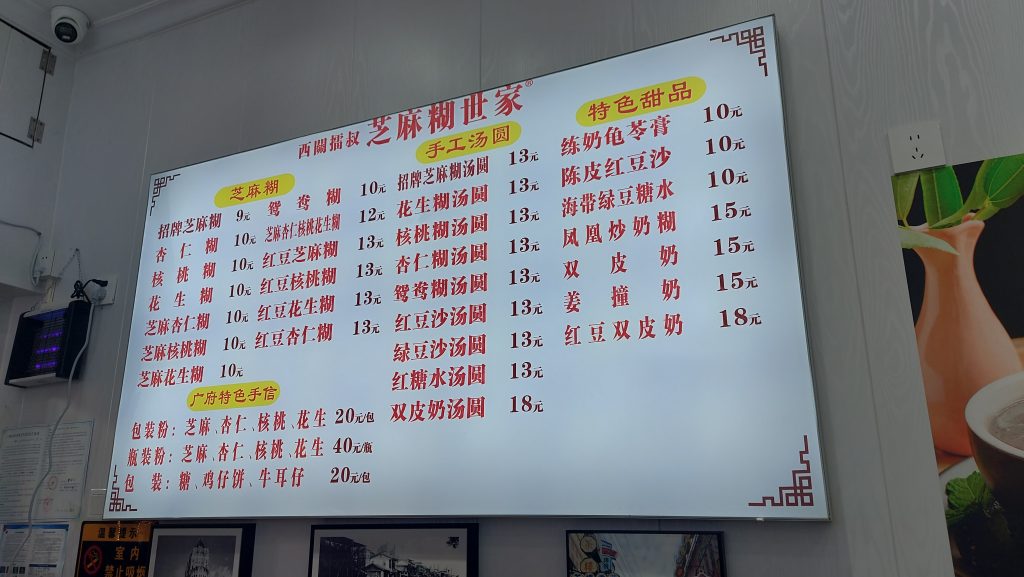 西關擂叔 芝麻糊世家®
芝麻糊
招牌芝麻糊 9元
杏仁糊 10元
核桃糊 10元
花生糊 10元
芝麻杏仁糊 10元
芝麻核桃糊 10元
芝麻花生糊 10元
鸳鸯糊 10元
芝麻杏仁核桃花生糊 12元
红豆芝麻糊 13元
红豆核桃糊 13元
红豆花生糊 13元
红豆杏仁糊 13元
广府特色手信
包装粉：芝麻、杏仁、核桃、花生 20元/包
瓶装粉：芝麻、杏仁、核桃、花生 40元/瓶
包装：糖、鸡仔饼、牛耳仔 20元/包
手工汤圆
招牌芝麻糊汤圆 13元
花生糊汤圆 13元
核桃糊汤圆 13元
杏仁糊汤圆 13元
鸳鸯糊汤圆 13元
红豆沙汤圆 13元
绿豆沙汤圆 13元
红糖水汤圆 13元
双皮奶汤圆 18元
特色甜品
练奶龟苓膏 10元
陈皮红豆沙 10元
海带绿豆糖水 10元
凤凰炒奶糊 15元
双皮奶 15元
姜撞奶 15元
红豆双皮奶 18元
温馨提示
室内
禁止吸烟